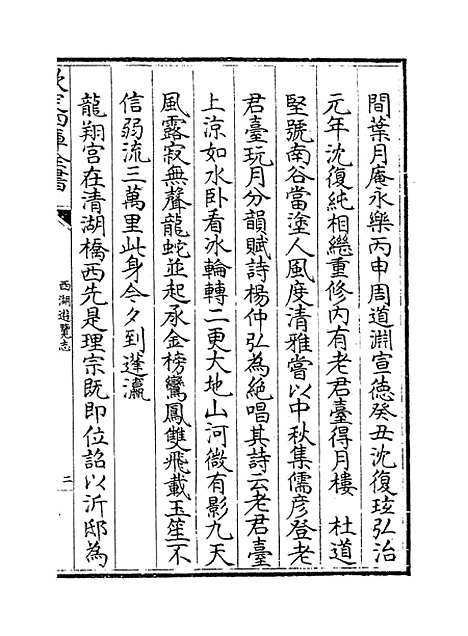 間葉月庵永樂丙申周道淵宣德癸丑沈復𤣱弘治
元年沈復純相繼重修内有老君臺得月樓　杜道
堅號南谷當塗人風度清雅嘗以中秋集儒彦登老
君臺玩月分韻賦詩楊仲弘為絶唱其詩云老君臺
上凉如水卧看冰輪轉二更大地山河微有影九天
風露寂無聲龍蛇並起承金榜鸞鳳雙飛載玉笙不
信弱流三萬里此身今夕到蓬瀛
龍翔宫在清湖橋西先是理宗既即位詔以沂邸為
欽定四庫全書
西湖遊覽志
二